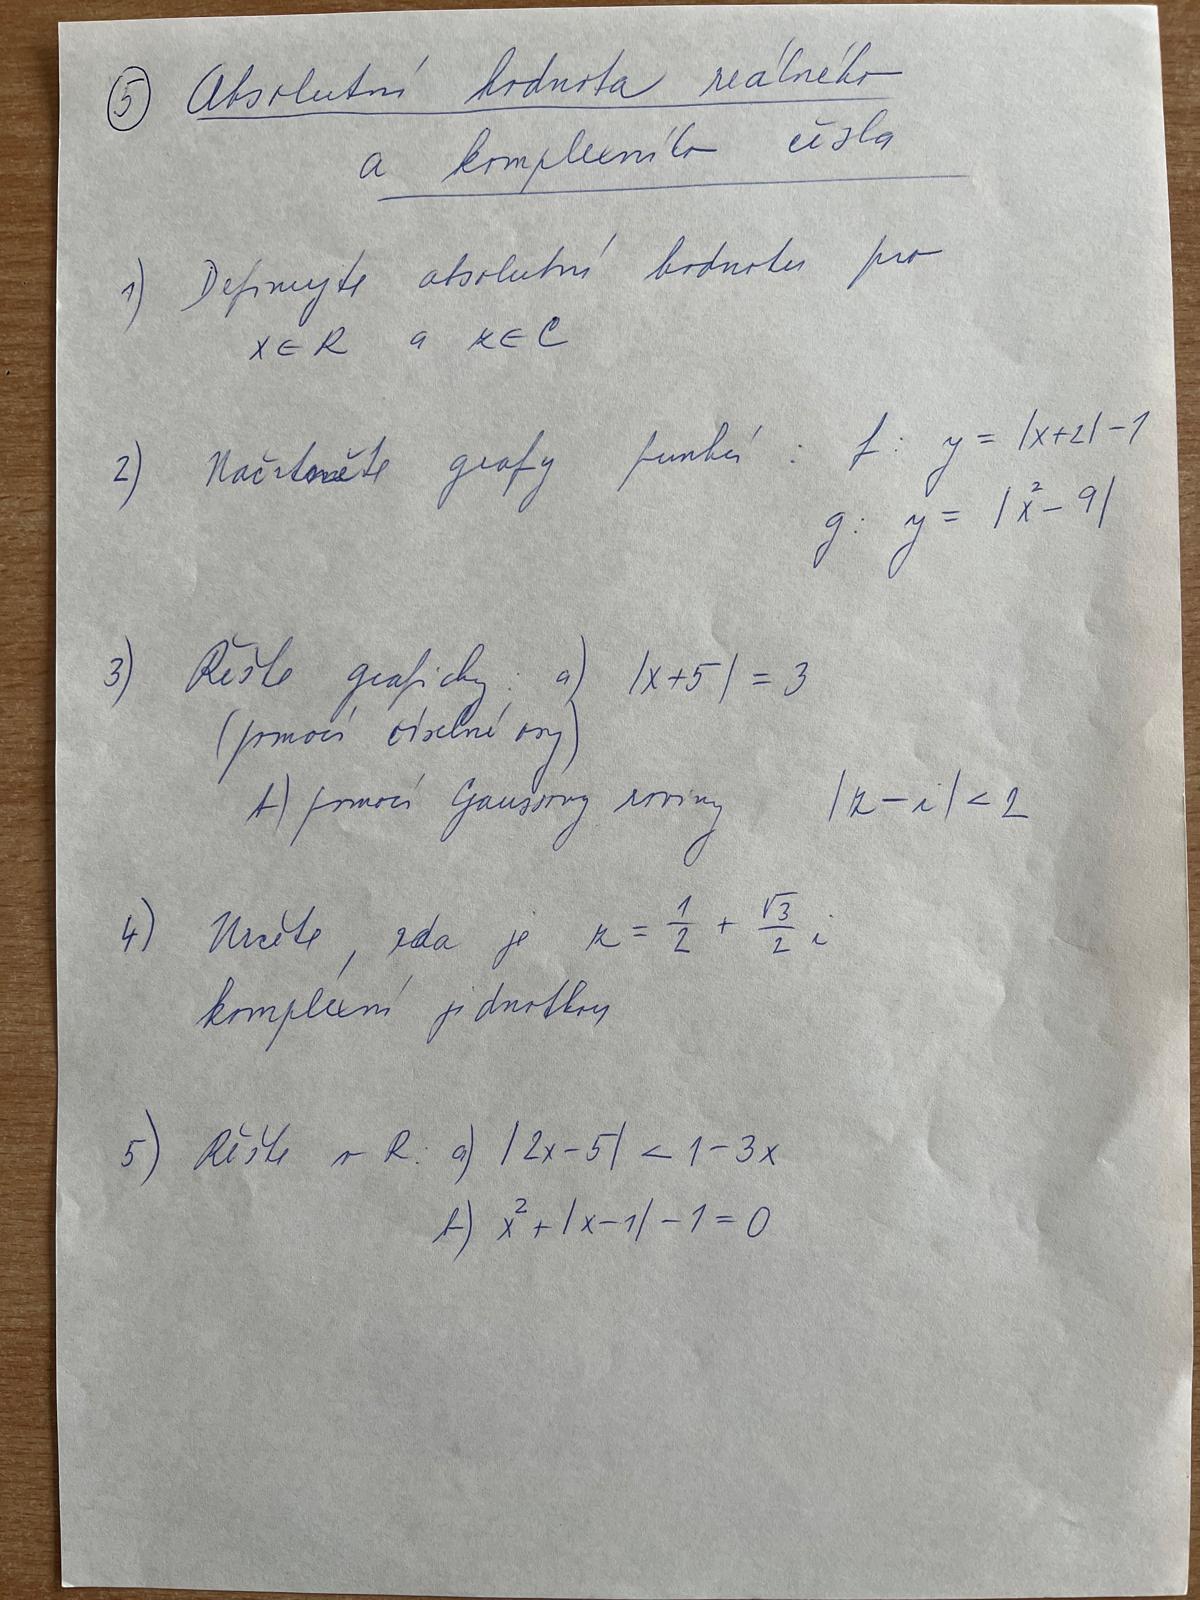 ⑤ Absolutní hodnota reálného
a komplexního čísla
1) Definujte absolutní hodnotu pro
x ∈ R a z ∈ C
2) Načrtněte grafy funkcí : f: y = |x+2| - 1
g: y = |x² - 9|
3) Řešte graficky: a) |x+5| = 3
(pomocí číselné osy)
b) pomocí Gaussovy roviny |z - i| < 2
4) Určete, zda je z = 1/2 + √3/2 i
komplexní jednotkou
5) Řešte v R: a) |2x-5| < 1-3x
b) x² + |x-1| - 1 = 0